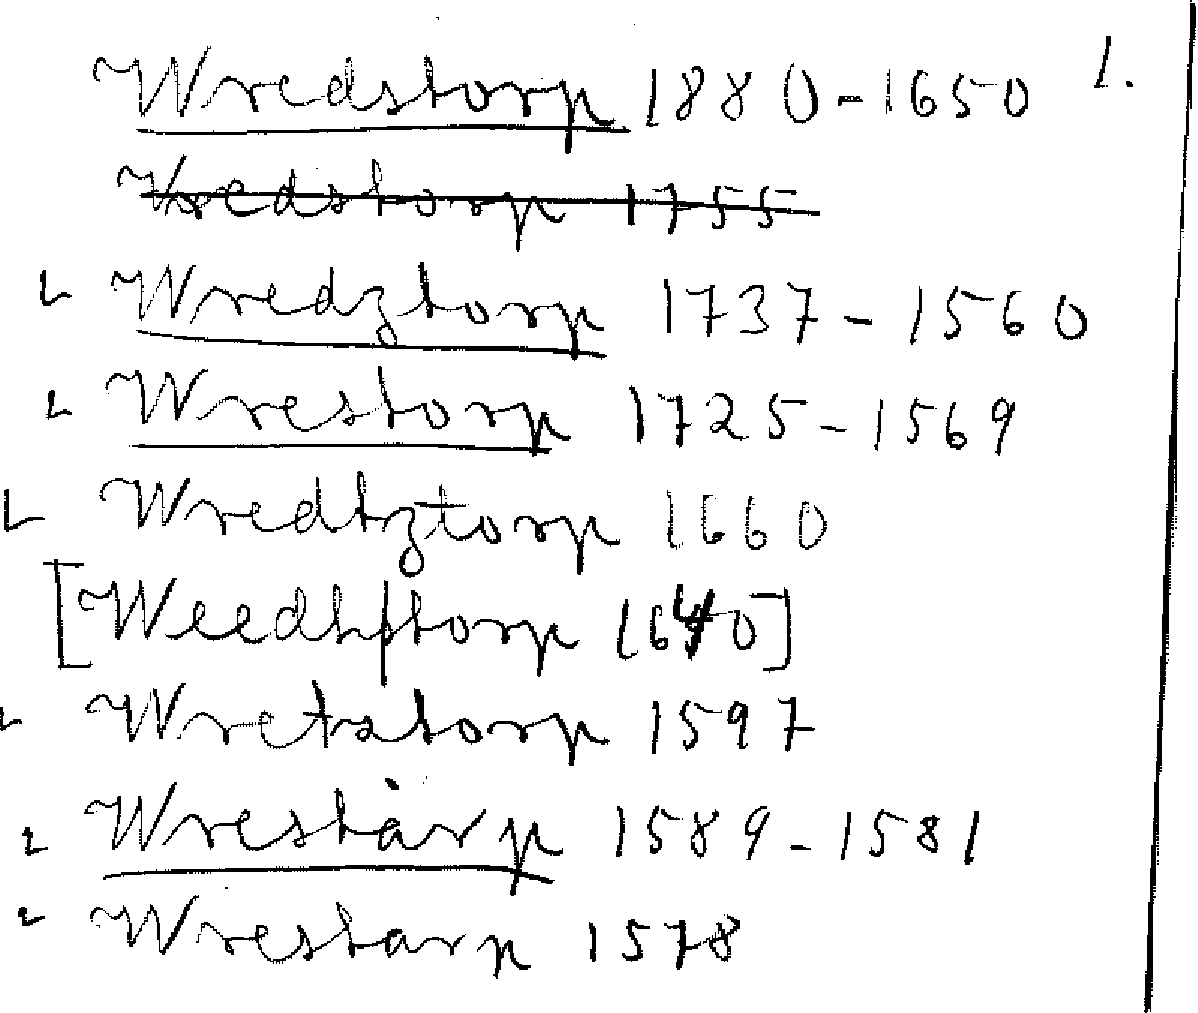 Wredstorp 1880-1650 1.
Vredstorp 1755
Wredztorp 1737-1560
Wrestorp 1725-1569
Wredtztorp 1660
[Weedhstorp 1640]
Wretstorp 1597
Wrestårp 1589-1581
Wrestarp 1578